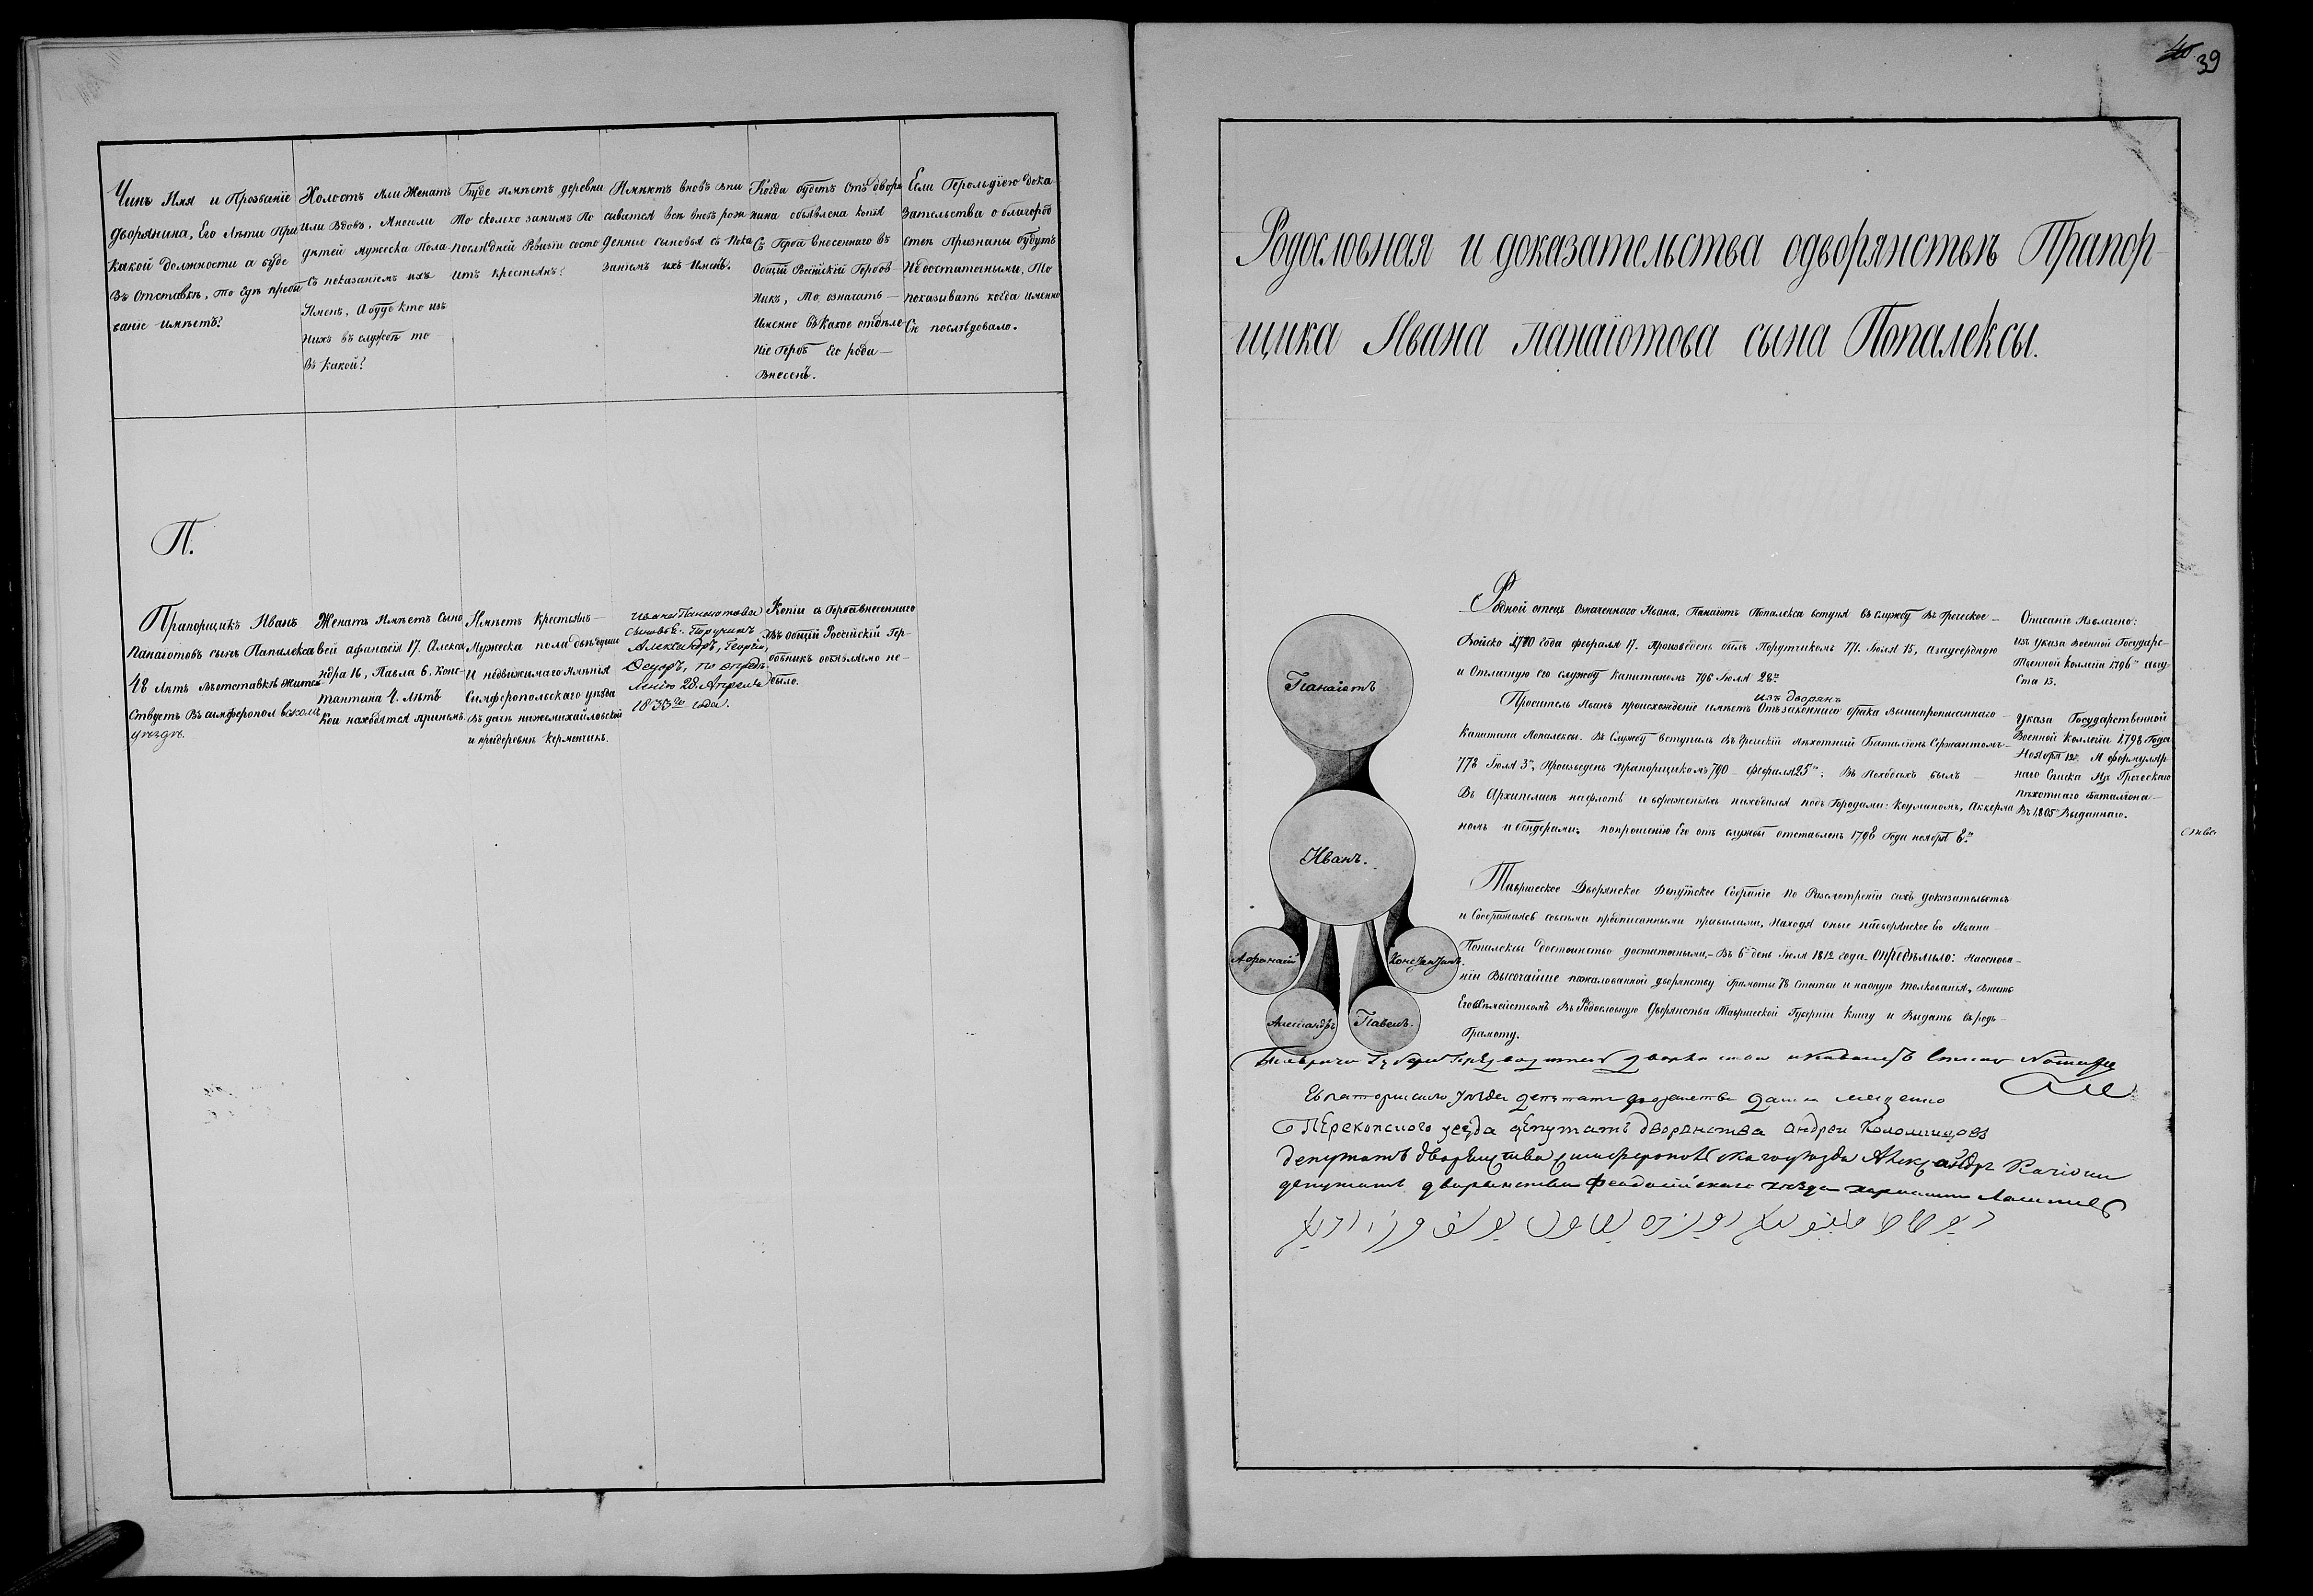 Чинъ Имя и Прозваніе
дворянина, Его Лѣти При
какой Должности а буде
Въ Отставкѣ, то Гдѣ пребы
ваніе имѣетъ?
Холостъ Или Женатъ
или Вдовъ, Многоли
дѣтей мужеска Пола
Съ показаніемъ ихъ
Именъ, А буде кто изъ
Нихъ въ службѣ то
Въ какой?
Буде имѣетъ деревни
То сколько занимъ По
Послѣдней Ревизіи состо
итъ крестьянъ?
Имѣютъ вновь впи
сыватся всѣ вновь рож
денные сыновья съ Пока
заніемъ ихъ Именъ.
Когда будетъ Отъ Двора
нина объявлена копія
Съ Герба внесеннаго въ
Общій Россійскій Гербов
Никъ, То означать
Именно въ какое отдѣле
ніе Гербъ Его рода
Внесенъ.
Если Герольдіею Дока
зательства о благород
ствѣ Признаны будутъ
Недостаточными, То
показывать когда именно
Сіе послѣдовало.
П.
Прапорщикъ Иванъ
Панаіотовъ сынъ Папалекса
48 Лѣтъ Въотставкѣ Жител
ствуетъ Въ симферопол скомъ
уѣздѣ.
Женатъ Имѣетъ Сыно
вей афанасія 17. Алекса
ндра 16, Павла 6, Конс
тантина 4. Лѣтъ
Кои находятся принемъ.
Имѣетъ Крестьянъ
Мужеска пола двѣ души
И недвижимаго Имѣнія
Симферопольскаго уѣзда
Въ дачѣ нижемихайловской
и придеревнѣ керменчикъ.
Ивана Панаіотова
сыновья: Поручикъ
Александръ, Георгій,
Ѳедоръ, по опредѣ
ленію 28. Апреля
1833го года.
Копіи съ Герба внесеннаго
Въ общій Россійскій Гер
бовникъ объявляемо не
было.
40 39
Родословная и доказательства одворянствѣ Прапор
щика Ивана панаіотова сына Попалексы.
Панаіотъ
Иванъ.
Афанасій
Константинъ.
Александръ
Павелъ.
Родной отецъ Означеннаго Ивана, Панаіотъ Попалекса вступя въ службу Въ Греческое
Войско 1770 года февраля 17. произведенъ былъ Порутчикомъ 771. Іюля 15, азаусердную
и Отличную его службу капитаномъ 796 Іюля 28го
изъ дворянъ
Проситель Иванъ происхожденіе имѣетъ Отъ законнаго брака Вышепрописаннаго
Капитана Попалексы. Въ Службу вступилъ Въ Греческій пѣхотный Баталіонъ Сержантомъ
778 Іюля 3го, Произведенъ прапорщикомъ 790 февраля 25го; Въ Походахъ былъ
Въ Архипелагѣ нафлотѣ и всраженіяхъ находился подъ Городами: Коуманомъ, Аккерма
номъ и бендерами; попрошенію Его отъ службы отставленъ 1798 Года ноября 8го
Описаніе Извлечено:
изъ указа Военной Государс
твенной коллегіи 1796го авгу
Ста 13.
Указа Государственной
Военной Коллегіи 1798 Года
Ноября 12го И формуляр
наго Списка Изъ Греческаго
пѣхотнаго Баталіона
Въ 1805 Выданнаго.
ства
Таврическое Дворянское Депутское Собраніе по Разсмотреніи сихъ доказательствъ
и Соображаясь совсѣми предписанными правилами, Находя оные надворянское Его Ивана
Попалексы достоинство достаточными, Въ 6 день Іюля 1812 года Опредѣлило: Наоснова
ніи Высочайше пожалованной дворянству Грамоты 78 Статьи и наоную толкованія, Внесть
Его съ Семействомъ Въ Родословную Дворянства Таврической Губерніи книгу и Выдать въ родъ
Грамоту.
Перекопского уезда депутатъ дворянства андреи
депутатъ дворянства симферопольскагоуезда Александръ
депутатъ дворянства Феодосійскаго уезда